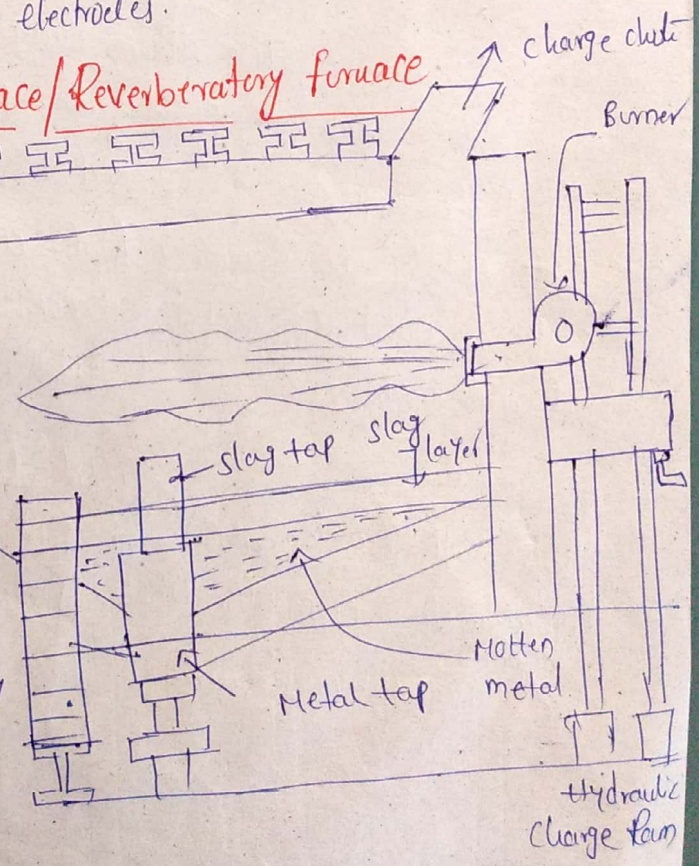 electrodes.
ace/Reverberatory furnace
charge chute
Burner
slag tap
slag
layer
Molten
metal
Metal tap
Hydraulic
Charge Ram